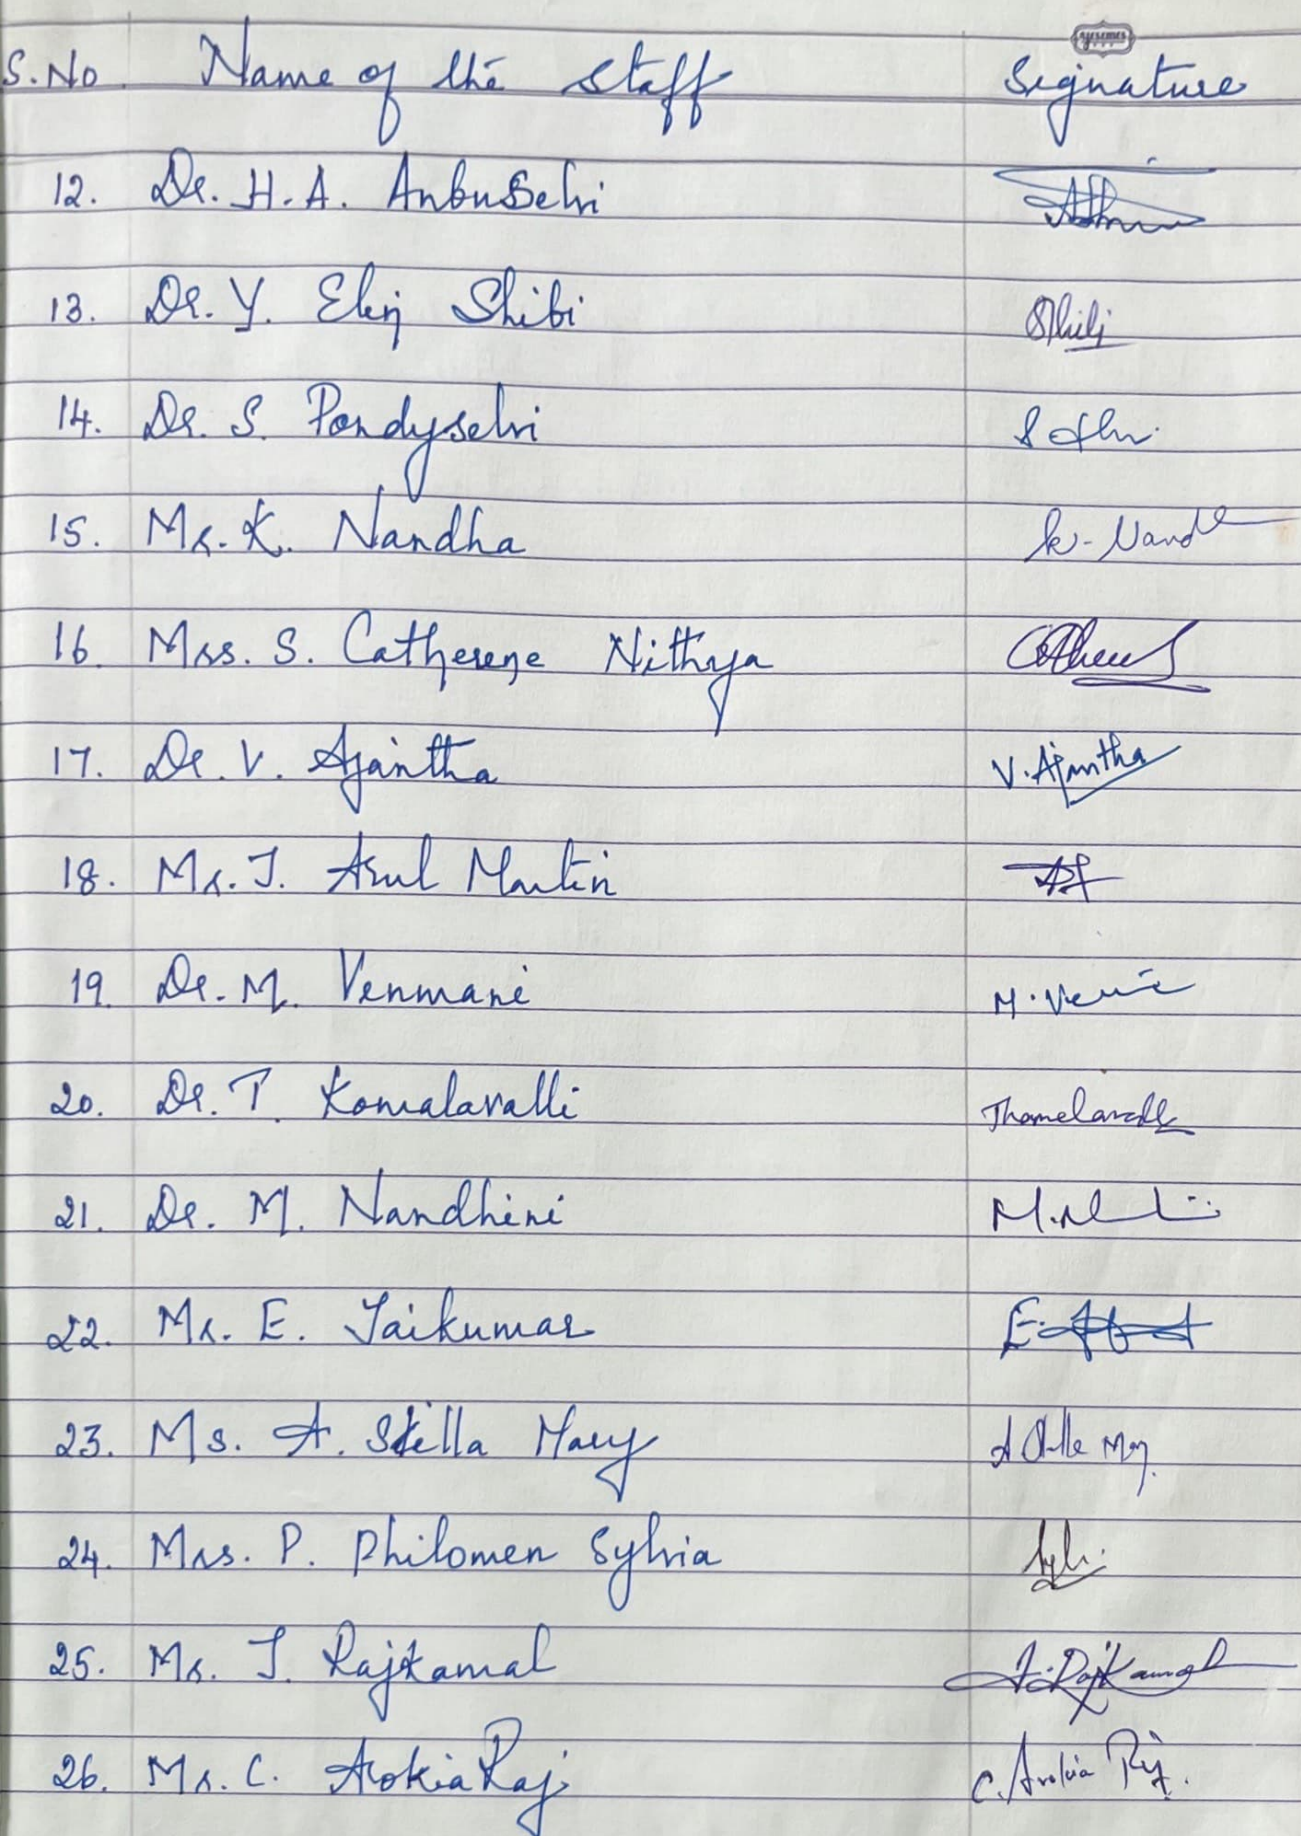 yesemes
S.No Name of the Staff Signature
12. Dr. H.A. AnbuSelvi
13. Dr. Y. Shibi Shibi
14. Dr. S. Pandyselvi
15. Mr. K. Nandha K. Nand
16. Mrs. S. Catherene Nithya
17. Dr. V. Ajantha V. Ajantha
18. Mr. J. Arul Martin
19. Dr. M. Venmani M. Veni
20. Dr. T. Komalavalli
21. Dr. M. Nandhini
22. Mr. E. Jaikumar E.
23. Ms. A. Stella Mary A Stella Mary
24. Mrs. P. Philomen Sylvia
25. Mr. J. Rajkamal J. RajKamal
26. Mr. C. ArokiaRaj C. Arokia Raj.